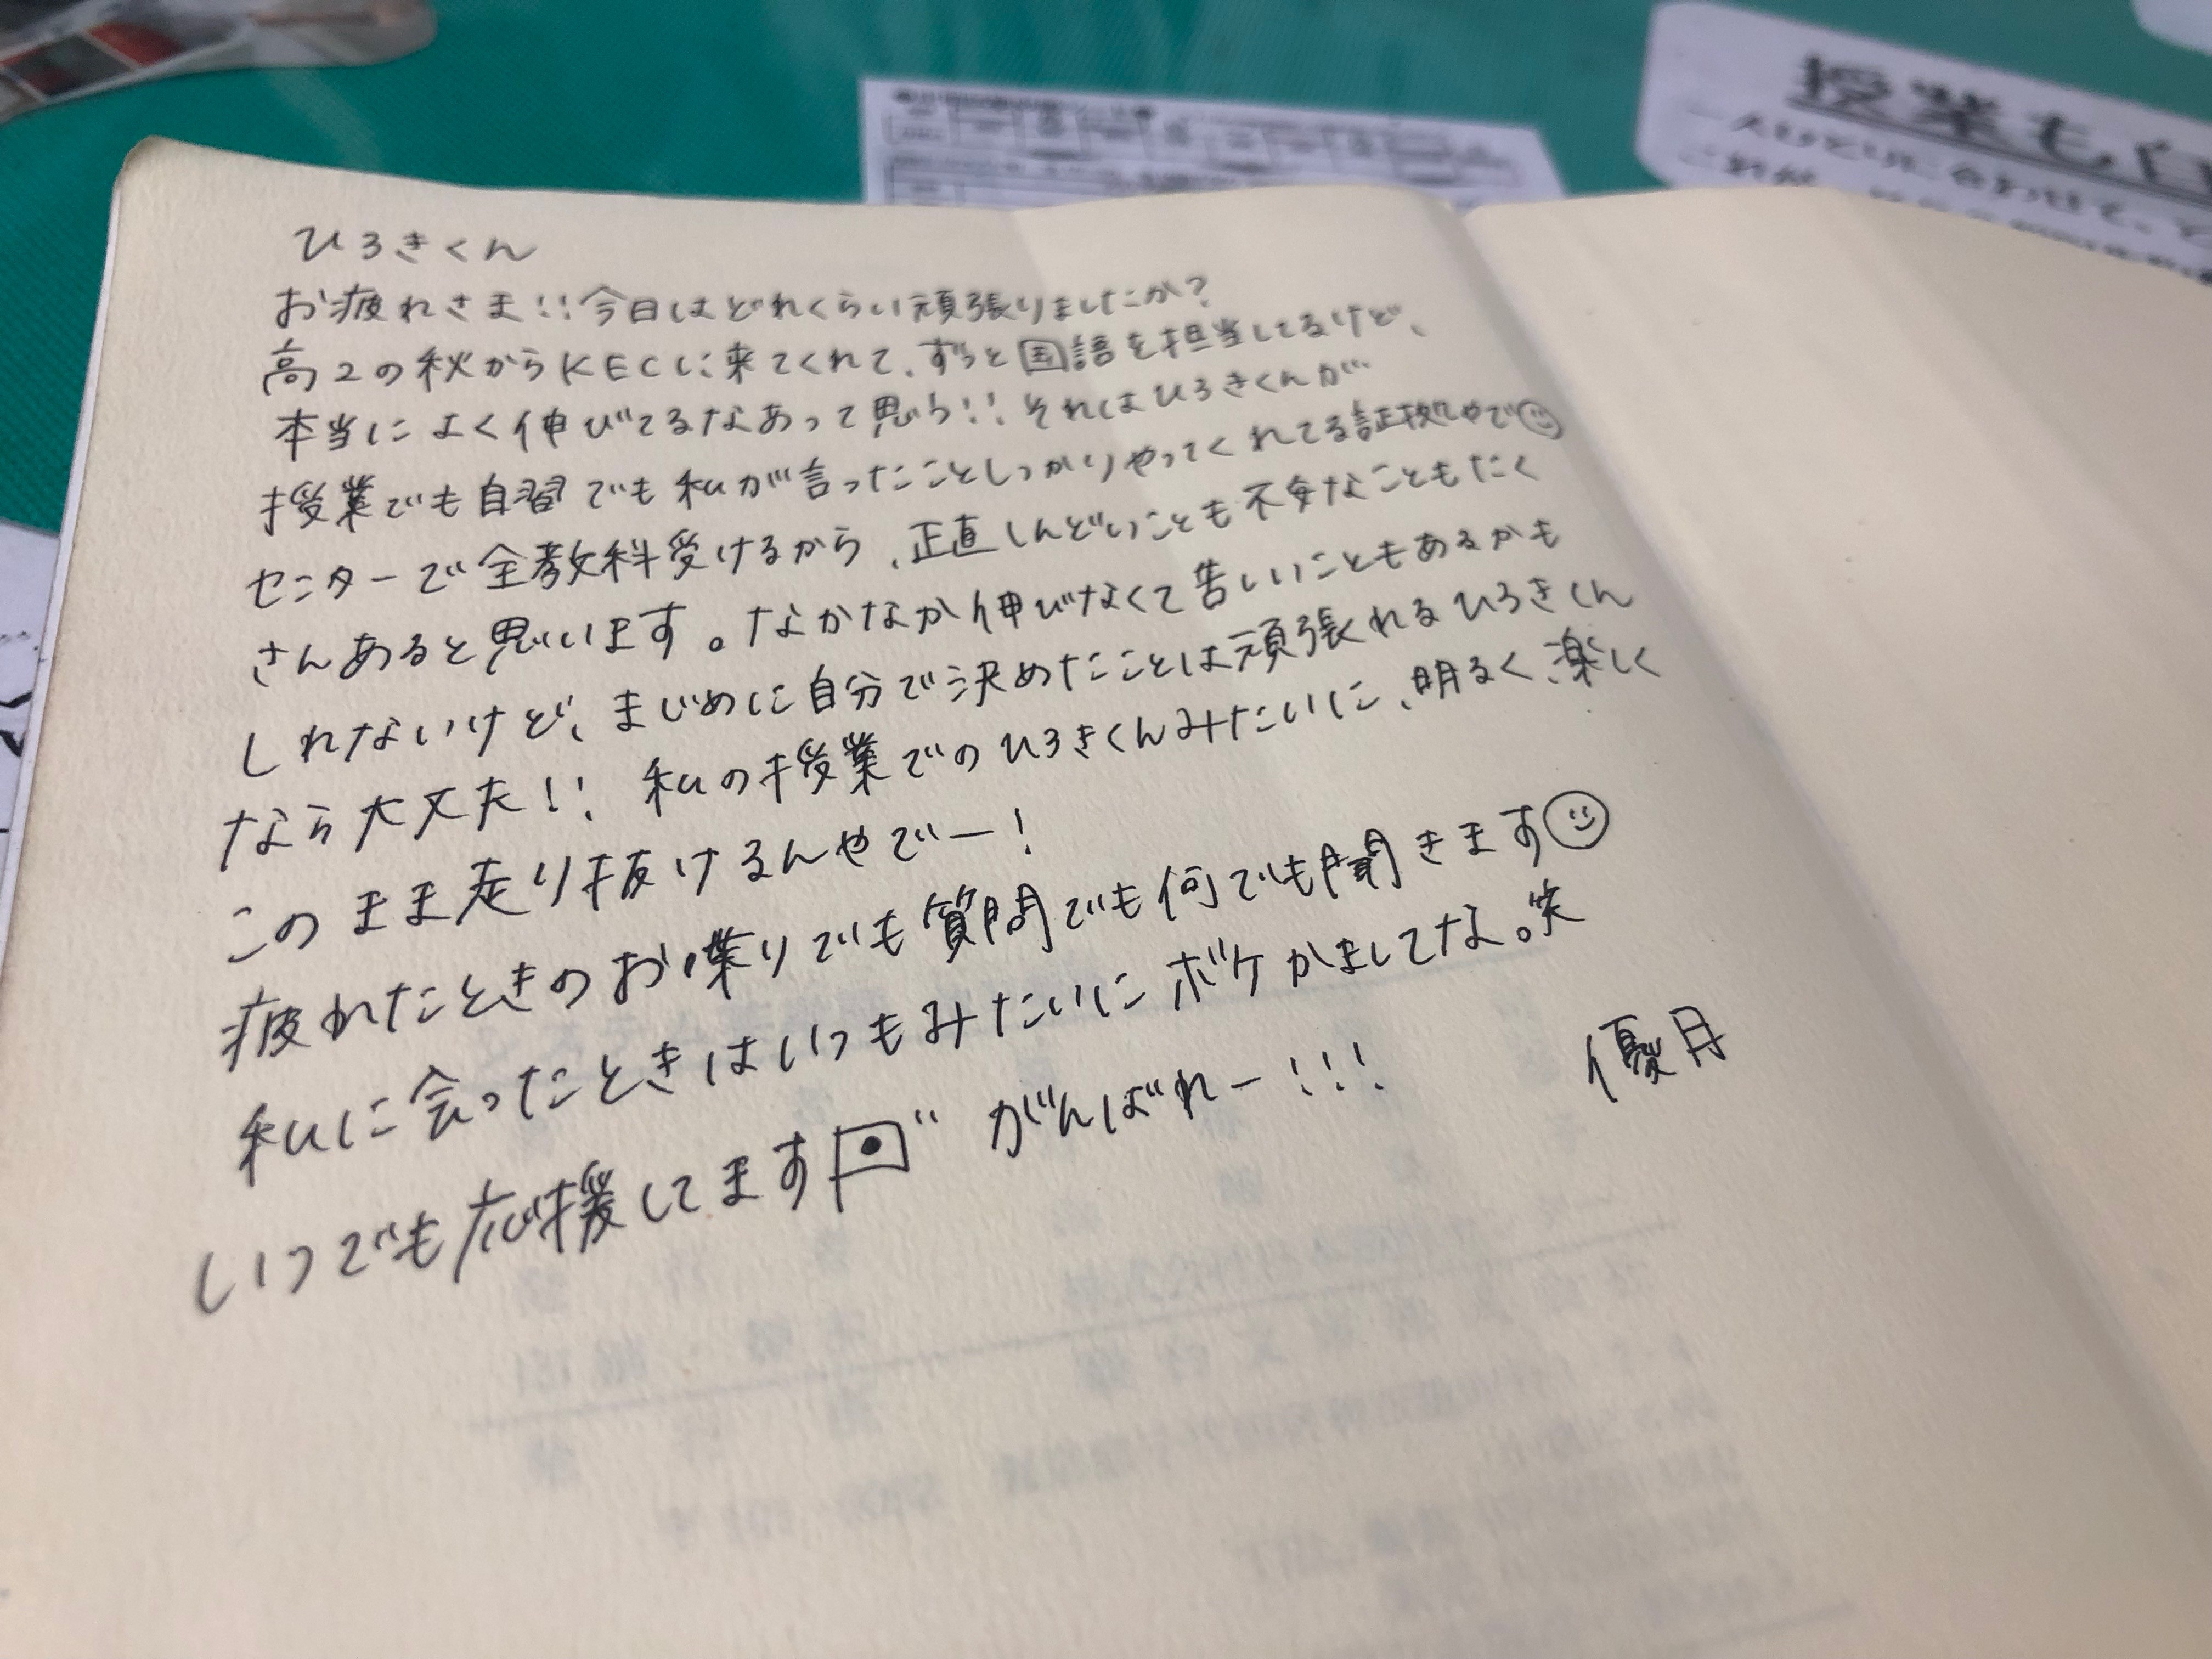 授業も
一人ひとりに合わせて、
ひろきくん
お疲れさま!!今日はどれくらい頑張りましたか?
高2の秋からKECに来てくれて、ずっと国語を担当してるけど、
本当によく伸びてるなあって思う!!それはひろきくんが
授業でも自習でも私が言ったことしっかりやってくれてる証拠やで
センターで全教科受けるから、正直しんどいことも不安なこともたく
さんあると思います。なかなか伸びなくて苦しいこともあるかも
しれないけど、まじめに自分で決めたことは頑張れるひろきくん
なら大丈夫!!私の授業でのひろきくんみたいに、明るく、楽しく
このまま走り抜けるんやでー!
疲れたときのお喋りでも質問でも何でも聞きます
私に会ったときはいつもみたいにボケかましてな。笑
いつでも応援してます がんばれー!!!
優月